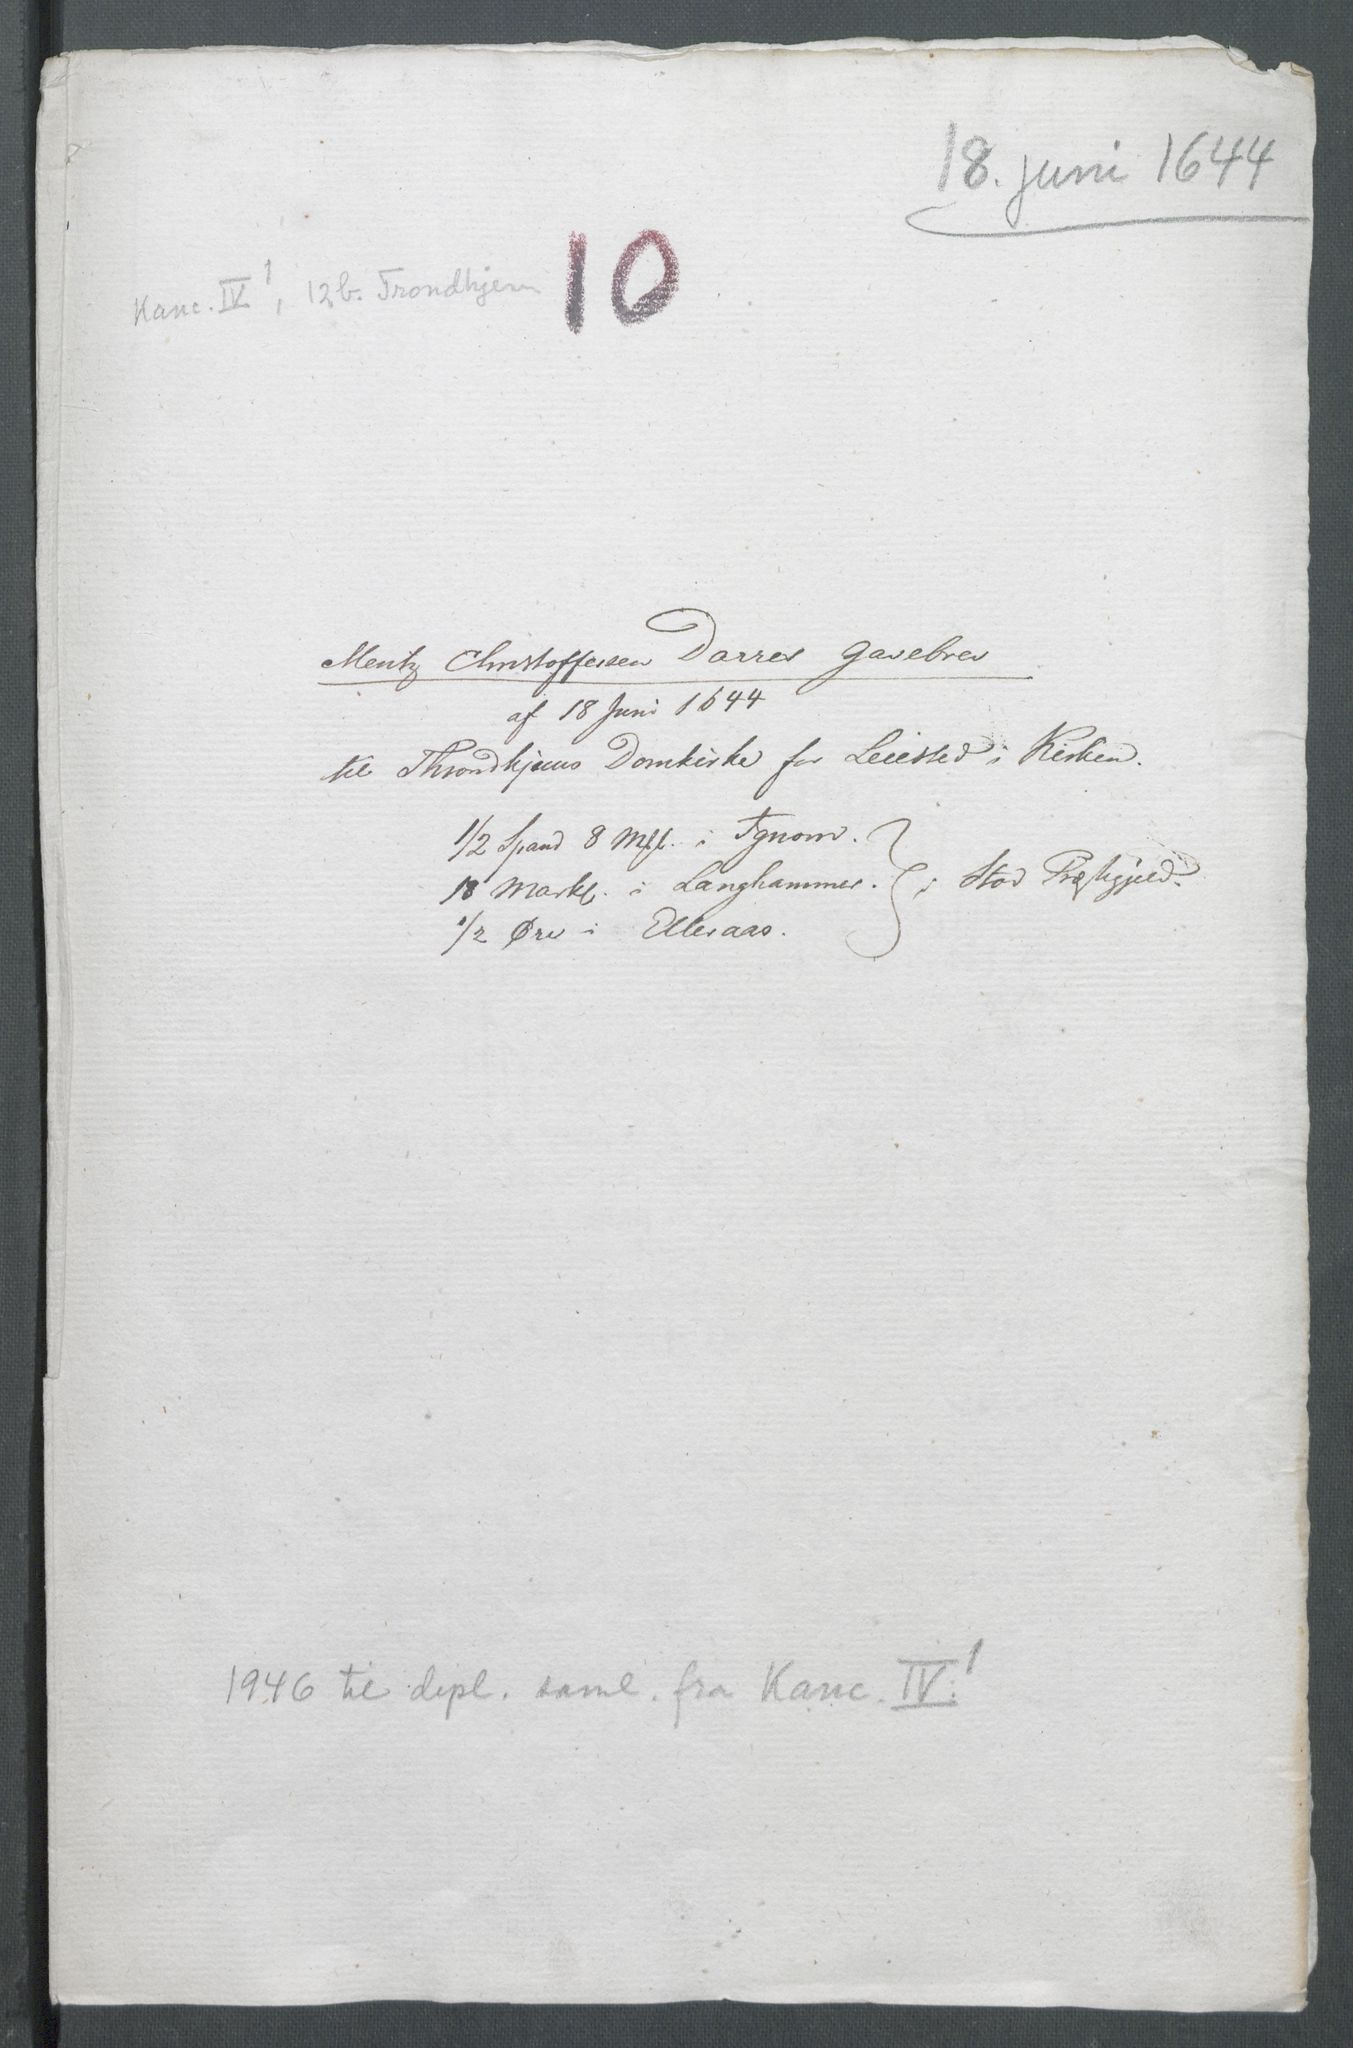 18. juni 1644
10
Kanc. IV¹, 12b. Trondhjem
Mentz Christoffersen Darres Gavebrev
af 18 Juni 1644
til Throndhjems Domkirke for Leiested i Kirken.
1/2 Spand 8 Mkl. i Tgnom. } i Stod Præstegjeld.
18 Markl. i Langhammer.
1/2 Øre i Elleraas.
1946 til dipl. saml. fra Kanc. IV.¹